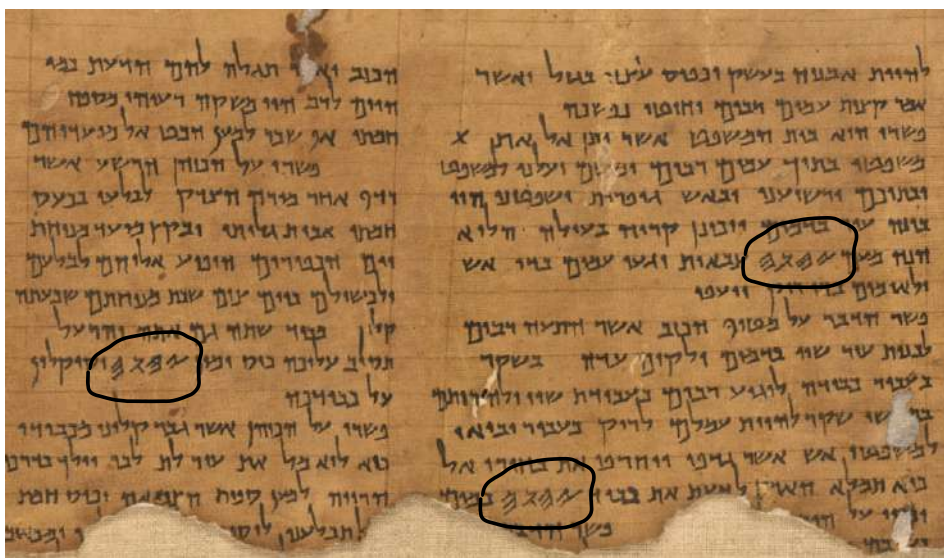 להיות אבניה בעשק וכפיס עיצה בגזל ואשר
אמר קצות עמים רבים וחוטי נפשכה
פשרו הוא בית המשפט אשר יתן אל את X
משפטו בתוך עמים רבים ומשם יעלנו למשפט
ובתוכם ירשיענו ובאש גופרית ישפטנו הוי
בונה עיר בדמים ויכונן קריה בעולה הלוא
הנה מעם 𐤉𐤄𐤅𐤄 צבאות יגעו עמים בדי אש
ולאומים בדי ריק ייעפו
פשר הדבר על מטיף הכזב אשר התעה רבים
לבנות עיר שוו בדמים ולקים עדה בשקר
בעבור כבודה לוגיע רבים בעבודת שוו ולהרותם
שקר להיות עמלם לריק בעבור יבואו
למשפטי אש אשר גדפו ויחרפו את בחירי אל
כיא תמלא הארץ לדעת את כבוד 𐤉𐤄𐤅𐤄 כמים
על פשר
הכזב ואחר תגלה להם הדעת כמי
הים לרב הוי משקה רעיהו מספח
חמתו אף שכר למען הבט אל מועדיהם
פשרו על הכוהן הרשע אשר
רדף אחר מורה הצדק לבלעו בכעס
חמתו אבית גלותו ובקץ מועד מנוחת
יום הכפורים הופיע אליהם לבלעם
ולכשילם ביום צום שבת מנוחתם שבעתה
קלון מכבוד שתה גם אתה והרעל
תסוב עליכה כוס ימין 𐤉𐤄𐤅𐤄 וקיקלון
על כבודכה
פשרו על הכוהן אשר גבר קלונו מכבודו
כיא לוא מל את עור לת לבו וילך בדרכי
הרויה למען ספות הצמאה וכוס חמת
תבלענו